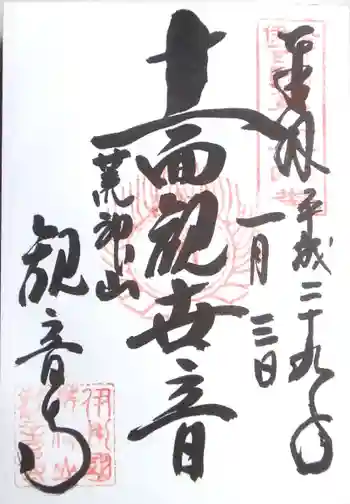 奉拝
平成二十九年
一月三日
十一面観世音
荒神山
観音寺